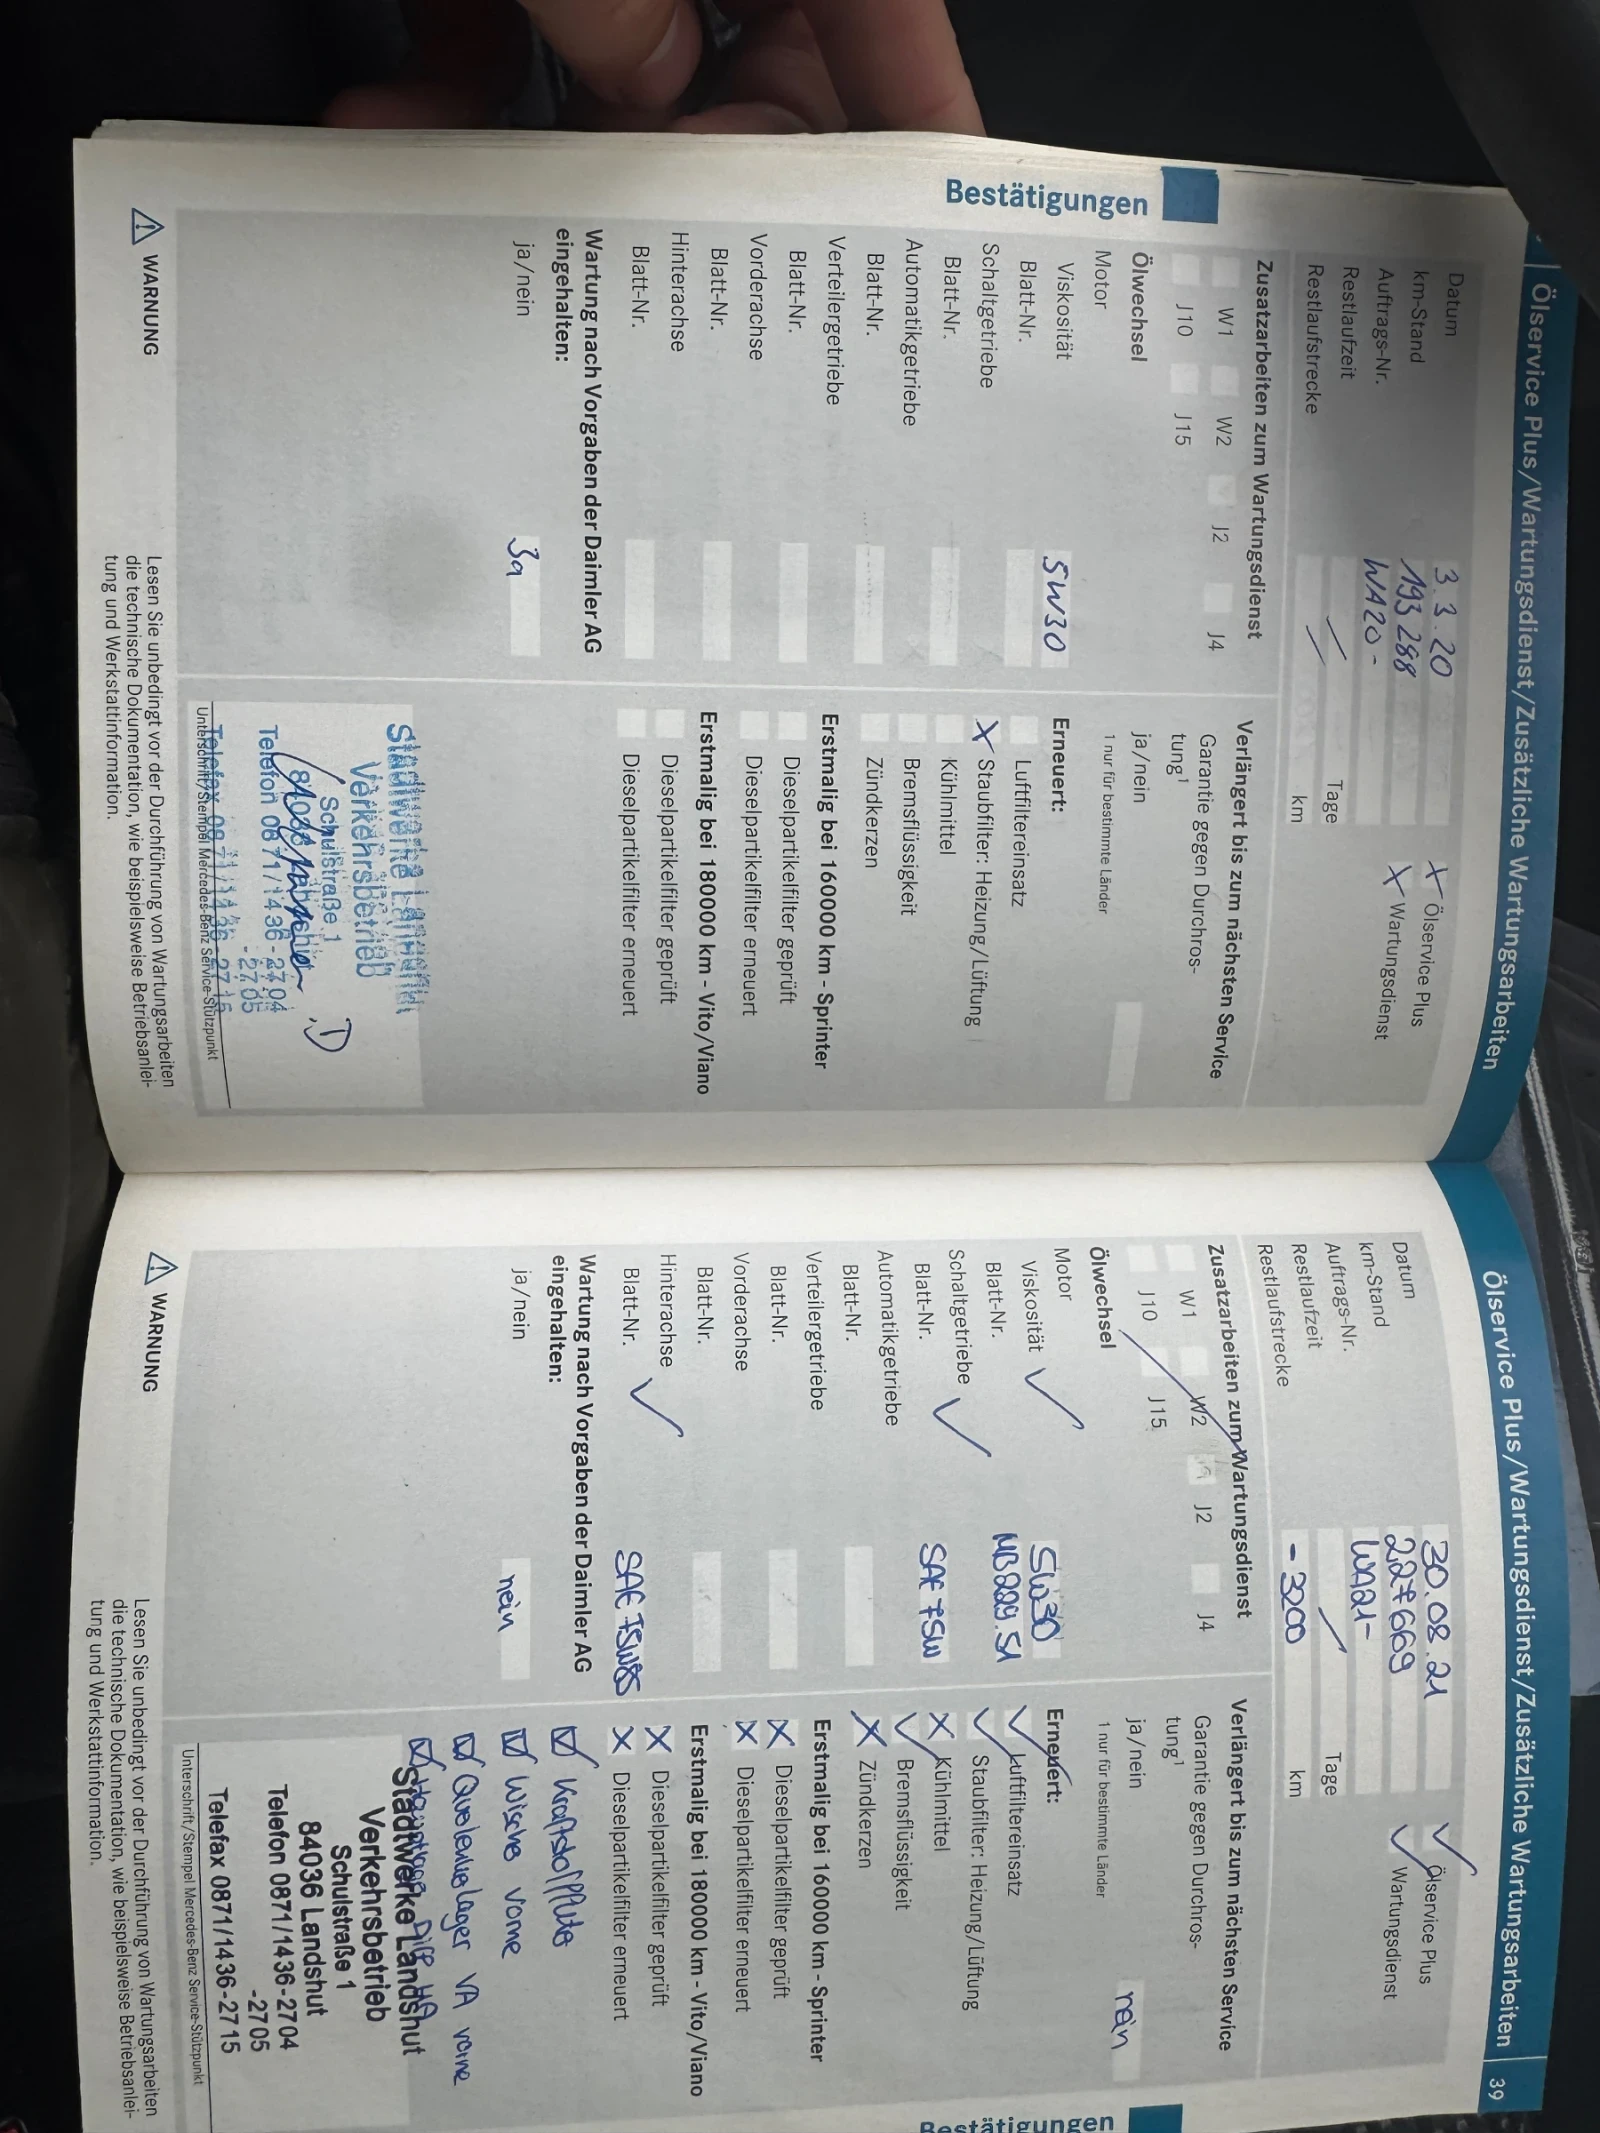 Ölservice Plus/Wartungsdienst/Zusätzliche Wartungsarbeiten
Bestätigungen
Datum 3.3.20 X Ölservice Plus
km-Stand 193 288 X Wartungsdienst
Auftrags-Nr. WA20-
Restlaufzeit Tage
Restlaufstrecke km
Zusatzarbeiten zum Wartungsdienst
W1 W2 J2 J4
J10 J15
Ölwechsel
Motor
Viskosität 5W30
Blatt-Nr.
Schaltgetriebe
Blatt-Nr.
Automatikgetriebe
Blatt-Nr.
Verteilergetriebe
Blatt-Nr.
Vorderachse
Blatt-Nr.
Hinterachse
Blatt-Nr.
Wartung nach Vorgaben der Daimler AG
eingehalten:
ja/nein Ja
Verlängert bis zum nächsten Service
Garantie gegen Durchros-
tung¹
ja/nein
1 nur für bestimmte Länder
Erneuert:
Luftfiltereinsatz
X Staubfilter: Heizung/Lüftung
Kühlmittel
Bremsflüssigkeit
Zündkerzen
Erstmalig bei 160000 km - Sprinter
Dieselpartikelfilter geprüft
Dieselpartikelfilter erneuert
Erstmalig bei 180000 km - Vito/Viano
Dieselpartikelfilter geprüft
Dieselpartikelfilter erneuert
Stadtwerke Landshut
Verkehrsbetrieb
Schulstraße 1
Telefon 0871/1436-2704
-2705
Telefax 0871/1436-2715
Unterschrift/Stempel Mercedes-Benz Service-Stützpunkt
WARNUNG
Lesen Sie unbedingt vor der Durchführung von Wartungsarbeiten
die technische Dokumentation, wie beispielsweise Betriebsanlei-
tung und Werkstattinformation.
Ölservice Plus/Wartungsdienst/Zusätzliche Wartungsarbeiten 39
Bestätigungen
Datum 30.08.21 ✓ Ölservice Plus
km-Stand 227669 ✓ Wartungsdienst
Auftrags-Nr. WA21-
Restlaufzeit Tage
Restlaufstrecke -3200 km
Zusatzarbeiten zum Wartungsdienst
W1 W2 J2 J4
J10 J15
Ölwechsel
Motor
Viskosität ✓ 5W30
Blatt-Nr. MB229.51
Schaltgetriebe ✓
Blatt-Nr. SAE 75W
Automatikgetriebe
Blatt-Nr.
Verteilergetriebe
Blatt-Nr.
Vorderachse
Blatt-Nr.
Hinterachse ✓
Blatt-Nr. SAE 75W85
Wartung nach Vorgaben der Daimler AG
eingehalten:
ja/nein nein
Verlängert bis zum nächsten Service
Garantie gegen Durchros-
tung¹
ja/nein nein
1 nur für bestimmte Länder
Erneuert:
✓ Luftfiltereinsatz
✓ Staubfilter: Heizung/Lüftung
X Kühlmittel
✓ Bremsflüssigkeit
X Zündkerzen
Erstmalig bei 160000 km - Sprinter
X Dieselpartikelfilter geprüft
X Dieselpartikelfilter erneuert
Erstmalig bei 180000 km - Vito/Viano
X Dieselpartikelfilter geprüft
X Dieselpartikelfilter erneuert
☑ Kraftstofffilter
☑ Wischer vorne
☑ Querlenkerlager VA vorne
☑ HA
Stadtwerke Landshut
Verkehrsbetrieb
Schulstraße 1
84036 Landshut
Telefon 0871/1436-2704
-2705
Telefax 0871/1436-2715
Unterschrift/Stempel Mercedes-Benz Service-Stützpunkt
WARNUNG
Lesen Sie unbedingt vor der Durchführung von Wartungsarbeiten
die technische Dokumentation, wie beispielsweise Betriebsanlei-
tung und Werkstattinformation.